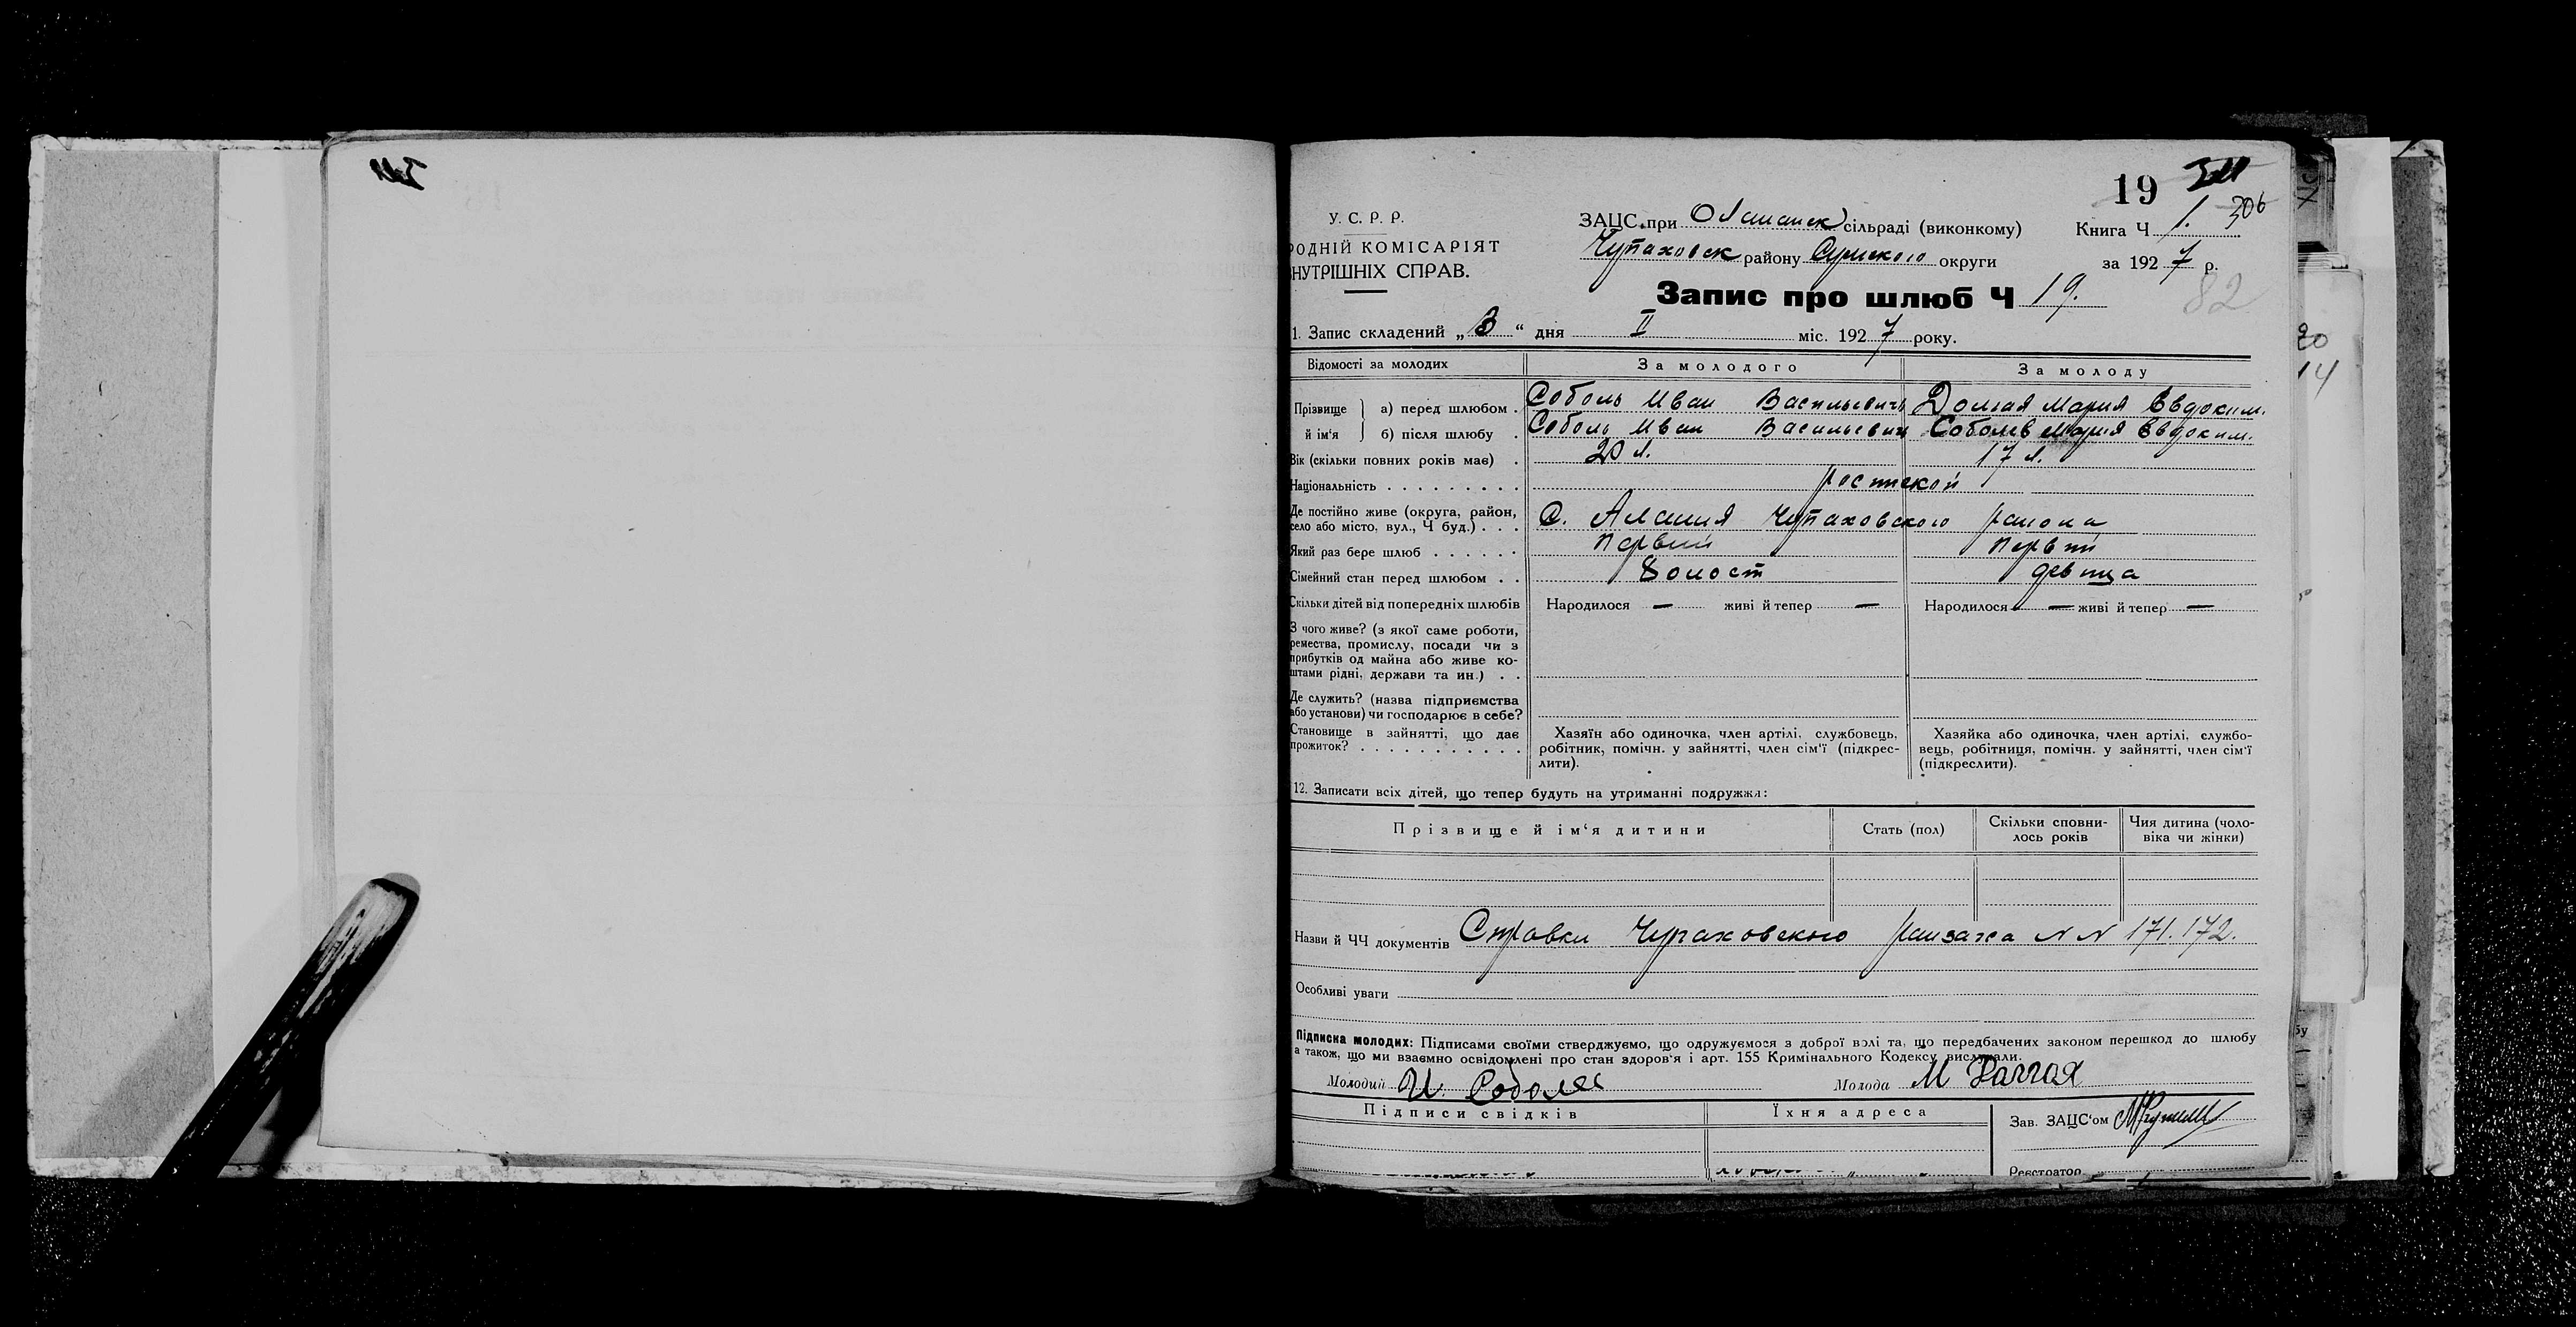 19
306
У. С. Р. Р.
ЗАЦС при Олешанск сільраді (виконкому)
Книга Ч 1.
РОДНІЙ КОМІСАРІЯТ
НУТРІШНІХ СПРАВ.
Чупаховск району Сумского округи
за 1927 р.
82
Запис про шлюб Ч 19.
1. Запис складений „3“ дня II міс. 1927 року.
Відомості за молодих
За молодого
За молоду
Прізвище й ім'я
а) перед шлюбом . Соболь Иван Васильевичъ Долгая Мария Евдоким.
б) після шлюбу . Соболь Иван Васильевич Соболев Мария Евдоким.
Вік (скільки повних років має) . 20 л. 17 л.
Національність . . . . . . . . .
Де постійно живе (округа, район,
село або місто, вул., Ч буд.) . . . С. Алешня Чупаховского района
Який раз бере шлюб . . . . . . Первый Первый
Сімейний стан перед шлюбом . . Холост девица
Скільки дітей від попередніх шлюбів Народилося — живі й тепер — Народилося — живі й тепер —
З чого живе? (з якої саме роботи,
ремества, промислу, посади чи з
прибутків од майна або живе ко-
штами рідні, держави та ин.) . .
Де служить? (назва підприємства
або установи) чи господарює в себе?
Становище в зайнятті, що дає
прожиток? . . . . . . . . . . .
Хазяїн або одиночка, член артілі, службовець,
робітник, помічн. у зайнятті, член сім'ї (підкрес-
лити).
Хазяйка або одиночка, член артілі, службо-
вець, робітниця, помічн. у зайнятті, член сім'ї
(підкреслити).
12. Записати всіх дітей, що тепер будуть на утриманні подружжя:
Прізвище й ім'я дитини
Стать (пол)
Скільки сповни-
лось років
Чия дитина (чоло-
віка чи жінки)
Назви й ЧЧ документів Справки Чупаховского райзагса NN 171. 172.
Особливі уваги
Підписка молодих: Підписами своїми стверджуємо, що одружуємося з доброї волі та, що передбачених законом перешкод до шлюбу
а також, що ми взаємно освідомлені про стан здоров'я і арт. 155 Кримінального Кодексу вислухали.
Молодий И. Соболь
Молода М Далгая
Підписи свідків
Їхня адреса
Зав. ЗАЦС'ом
Реєстратор
20
14